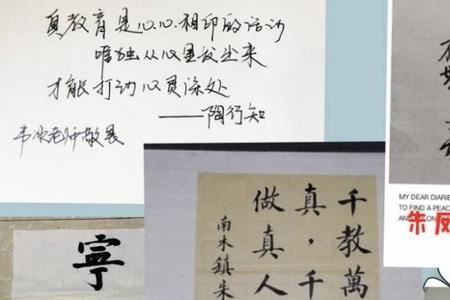 真教育是心心相印的活动
唯独从心里发出来
才能打动心灵深处
——陶行知
敬展
千教萬
真，千
做真人
南木鎮朱
寧
MY DEAR DIARIE
TO FIND A PEAC
朱凤